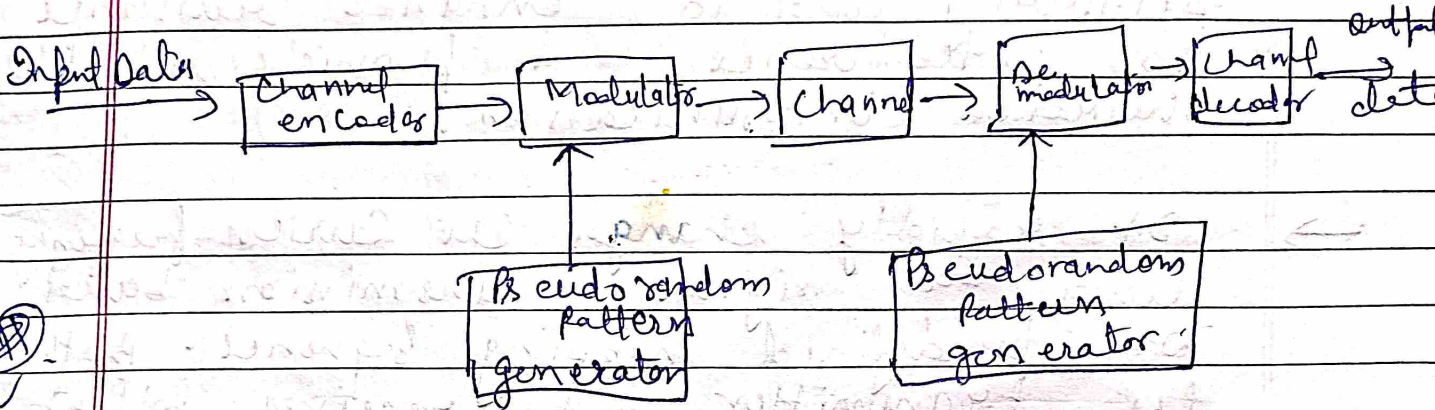 Input Data
Channel
encoder
Modulator
Channel
De
modulator
Channel
decoder
output
data
Pseudorandom
Pattern
generator
Pseudorandom
Pattern
generator